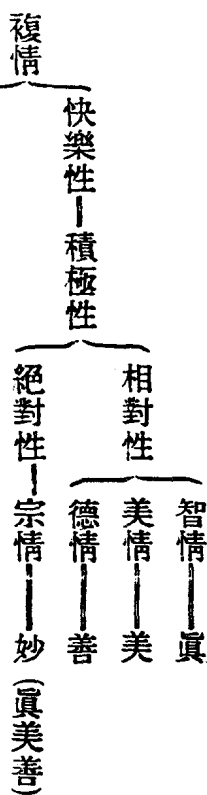 複情
快樂性―積極性
相對性
智情――眞
美情――美
德情――善
絕對性―宗情――妙(眞美善)